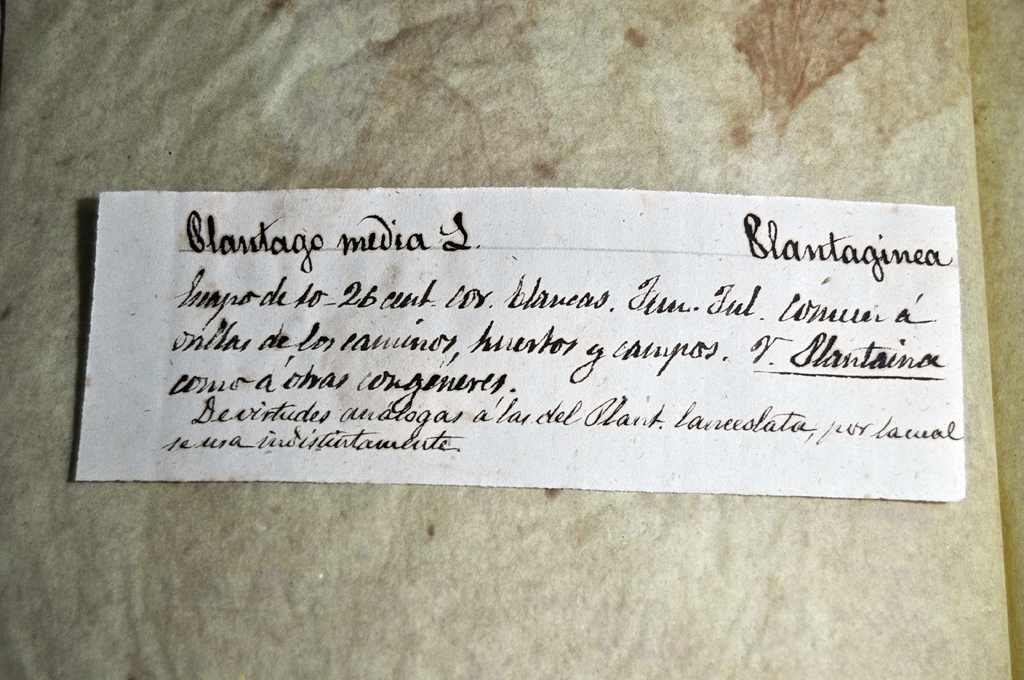 Plantago media L. Plantaginea
Escapo de 10-26 cent. cor. blancas. Jun. Jul. comun á
orillas de los caminos, huertos y campos. V. Plantaina
como á otras congéneres.
De virtudes análogas á las del Plant. lanceolata, por la cual
se usa indistintamente